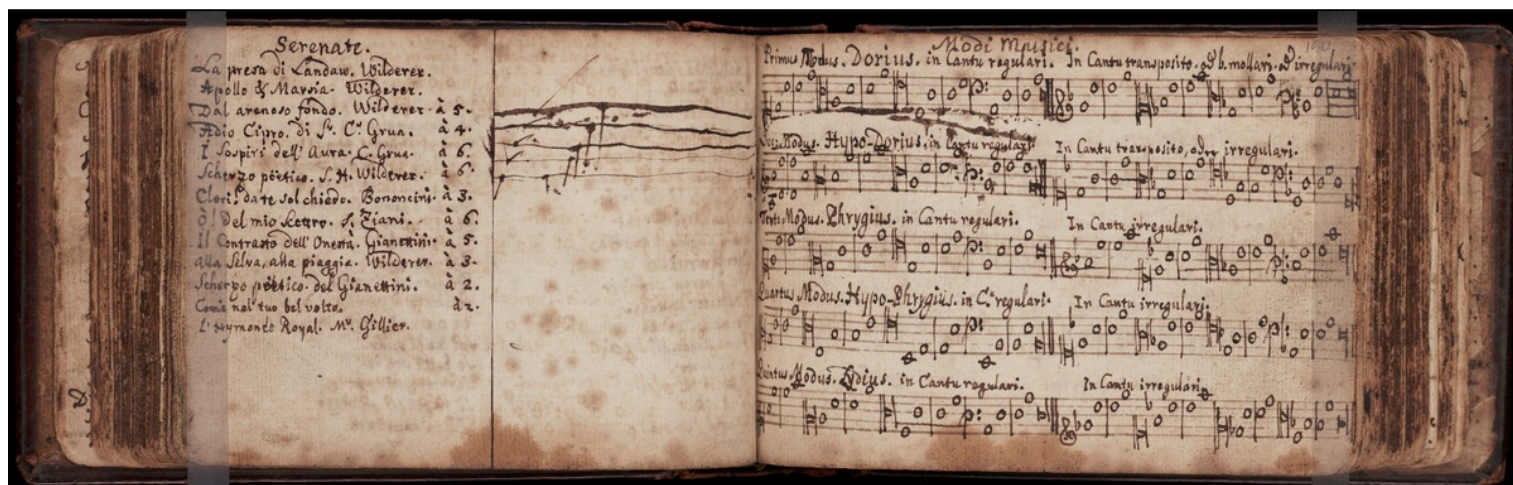 Serenate.
La presa di Landaw. Wilderer.
Apollo & Marsia. Wilderer.
Dal arenoso fondo. Wilderer. à 5.
Adio Cipro. di Sr. C. Grua. à 4.
I Sospiri dell' Aura. C. Grua. à 6.
Scherzo pöetico. S. H. Wilderer. à 6.
Clori! da te sol chiedo. Bononcini. à 3.
ò! Del mio S. Ziani. à 6.
Il Contrasto dell' Onestà. Gianettini. à 5.
alla Selva, alla piaggia. Wilderer. à 3.
Scherzo pöetico del Gianettini. à 2.
Come nel tuo bel volto. à 2.
L'Hymenée Royal. Mr. Gillier.
Modi Musici.
190
Primus Modus. Dorius. in Cantu regulari. In Cantu transposito. ad b. mollari. ad irregulari.
Modus. Hypo-Dorius. in Cantu regulari. In Cantu transposito, irregulari.
Modus. Phrygius. in Cantu regulari. In Cantu irregulari.
Quartus Modus. Hypo-Phrygius. in C. regulari. In Cantu irregulari.
Quintus Modus. Lydius. in Cantu regulari. In Cantu irregulari.